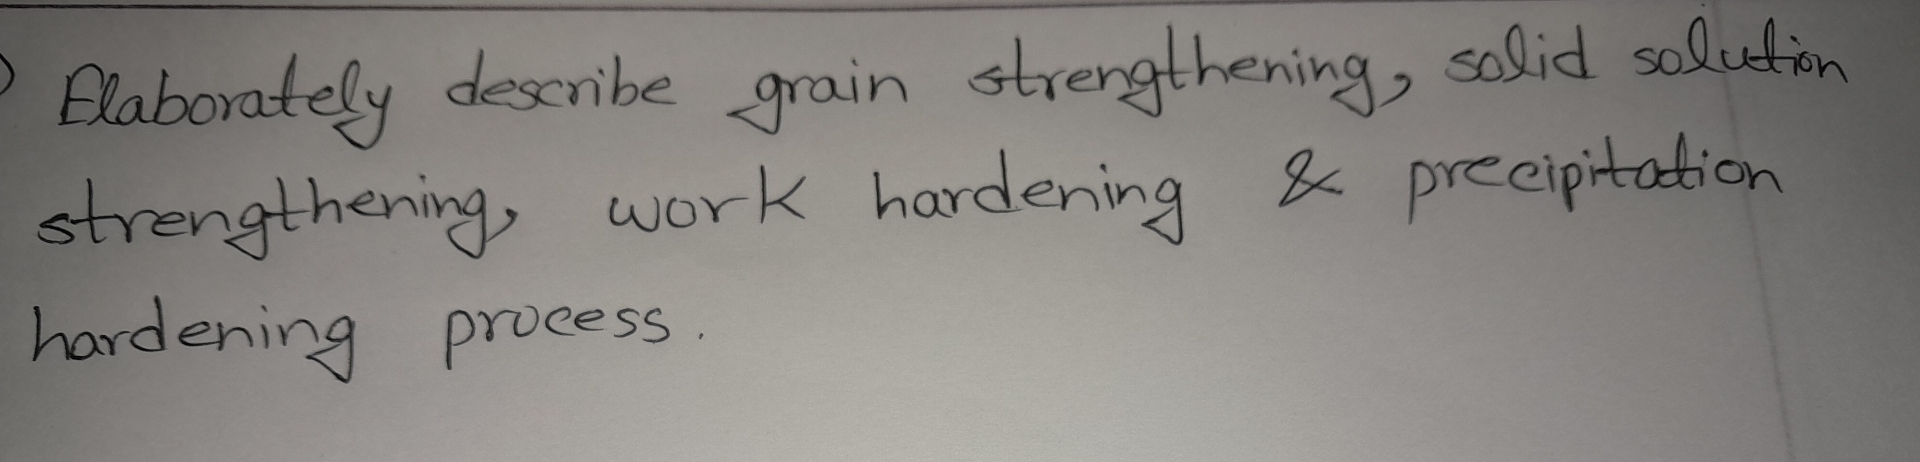 ) Elaborately describe grain strengthening, solid solution
strengthening, work hardening & precipitation
hardening process.